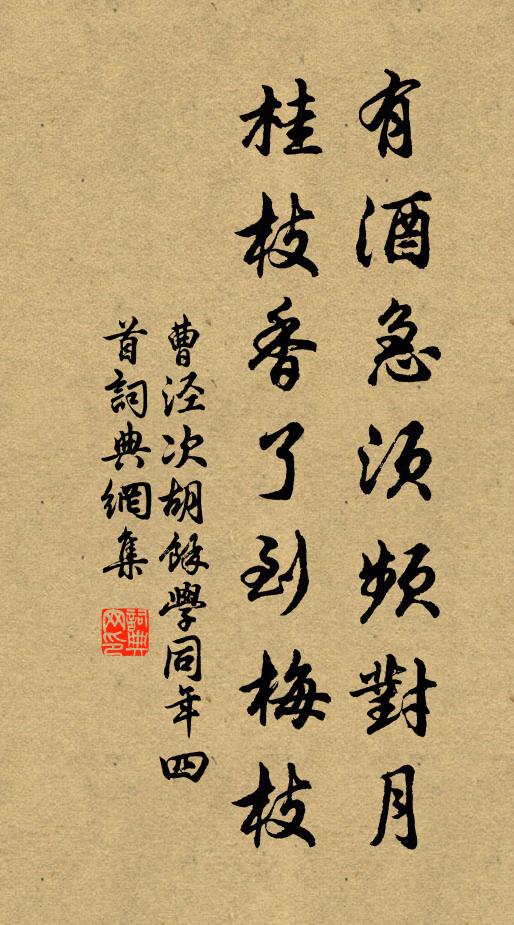 有酒急須頻對月
桂枝香了到梅枝
曹泾次胡餘學同年四
首詞典網集
詞典
网印